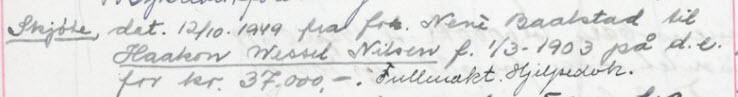 Skjöte, dat. 12/10.1949 fra frk. Nenè Baalstad til
Haakon Wessel Nilsen f. 1/3-1903 på d.e.
for kr. 37.000,-. Fullmakt. Hjelpedok.